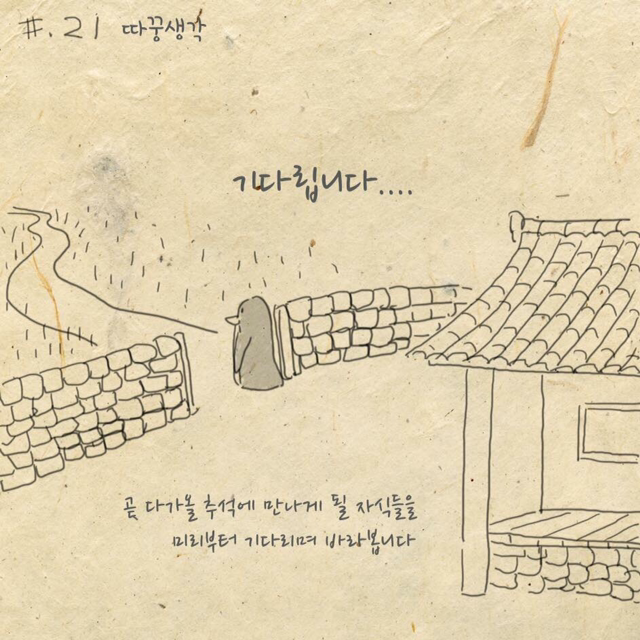 #.21 따꿍생각
기다립니다....
곧 다가올 추석에 만나게 될 자식들을
미리부터 기다리며 바라봅니다